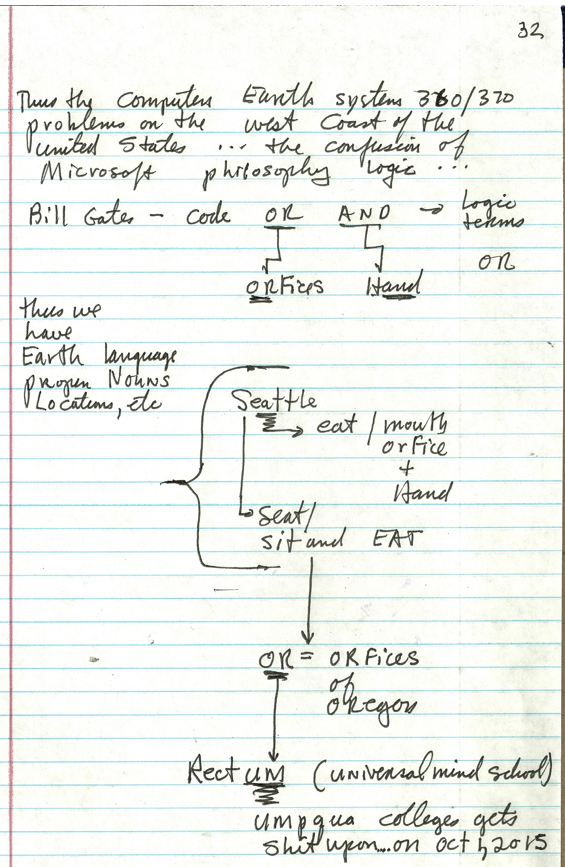 32
Thus the computer Earth systems 360/370
problems on the west coast of the
United States ... the confusion of
Microsoft philosophy logic ...
Bill Gates - code OR AND → Logic
terms
OR
ORFices Hand
thus we
have
Earth language
proper Nouns
Locations, etc
Seattle
eat / mouth
orfice
+
Hand
Seat/
sit and EAT
OR = ORFices
of
ORegon
RectUM (universal mind school)
umpqua colleges gets
shit upon...on Oct 1, 2015